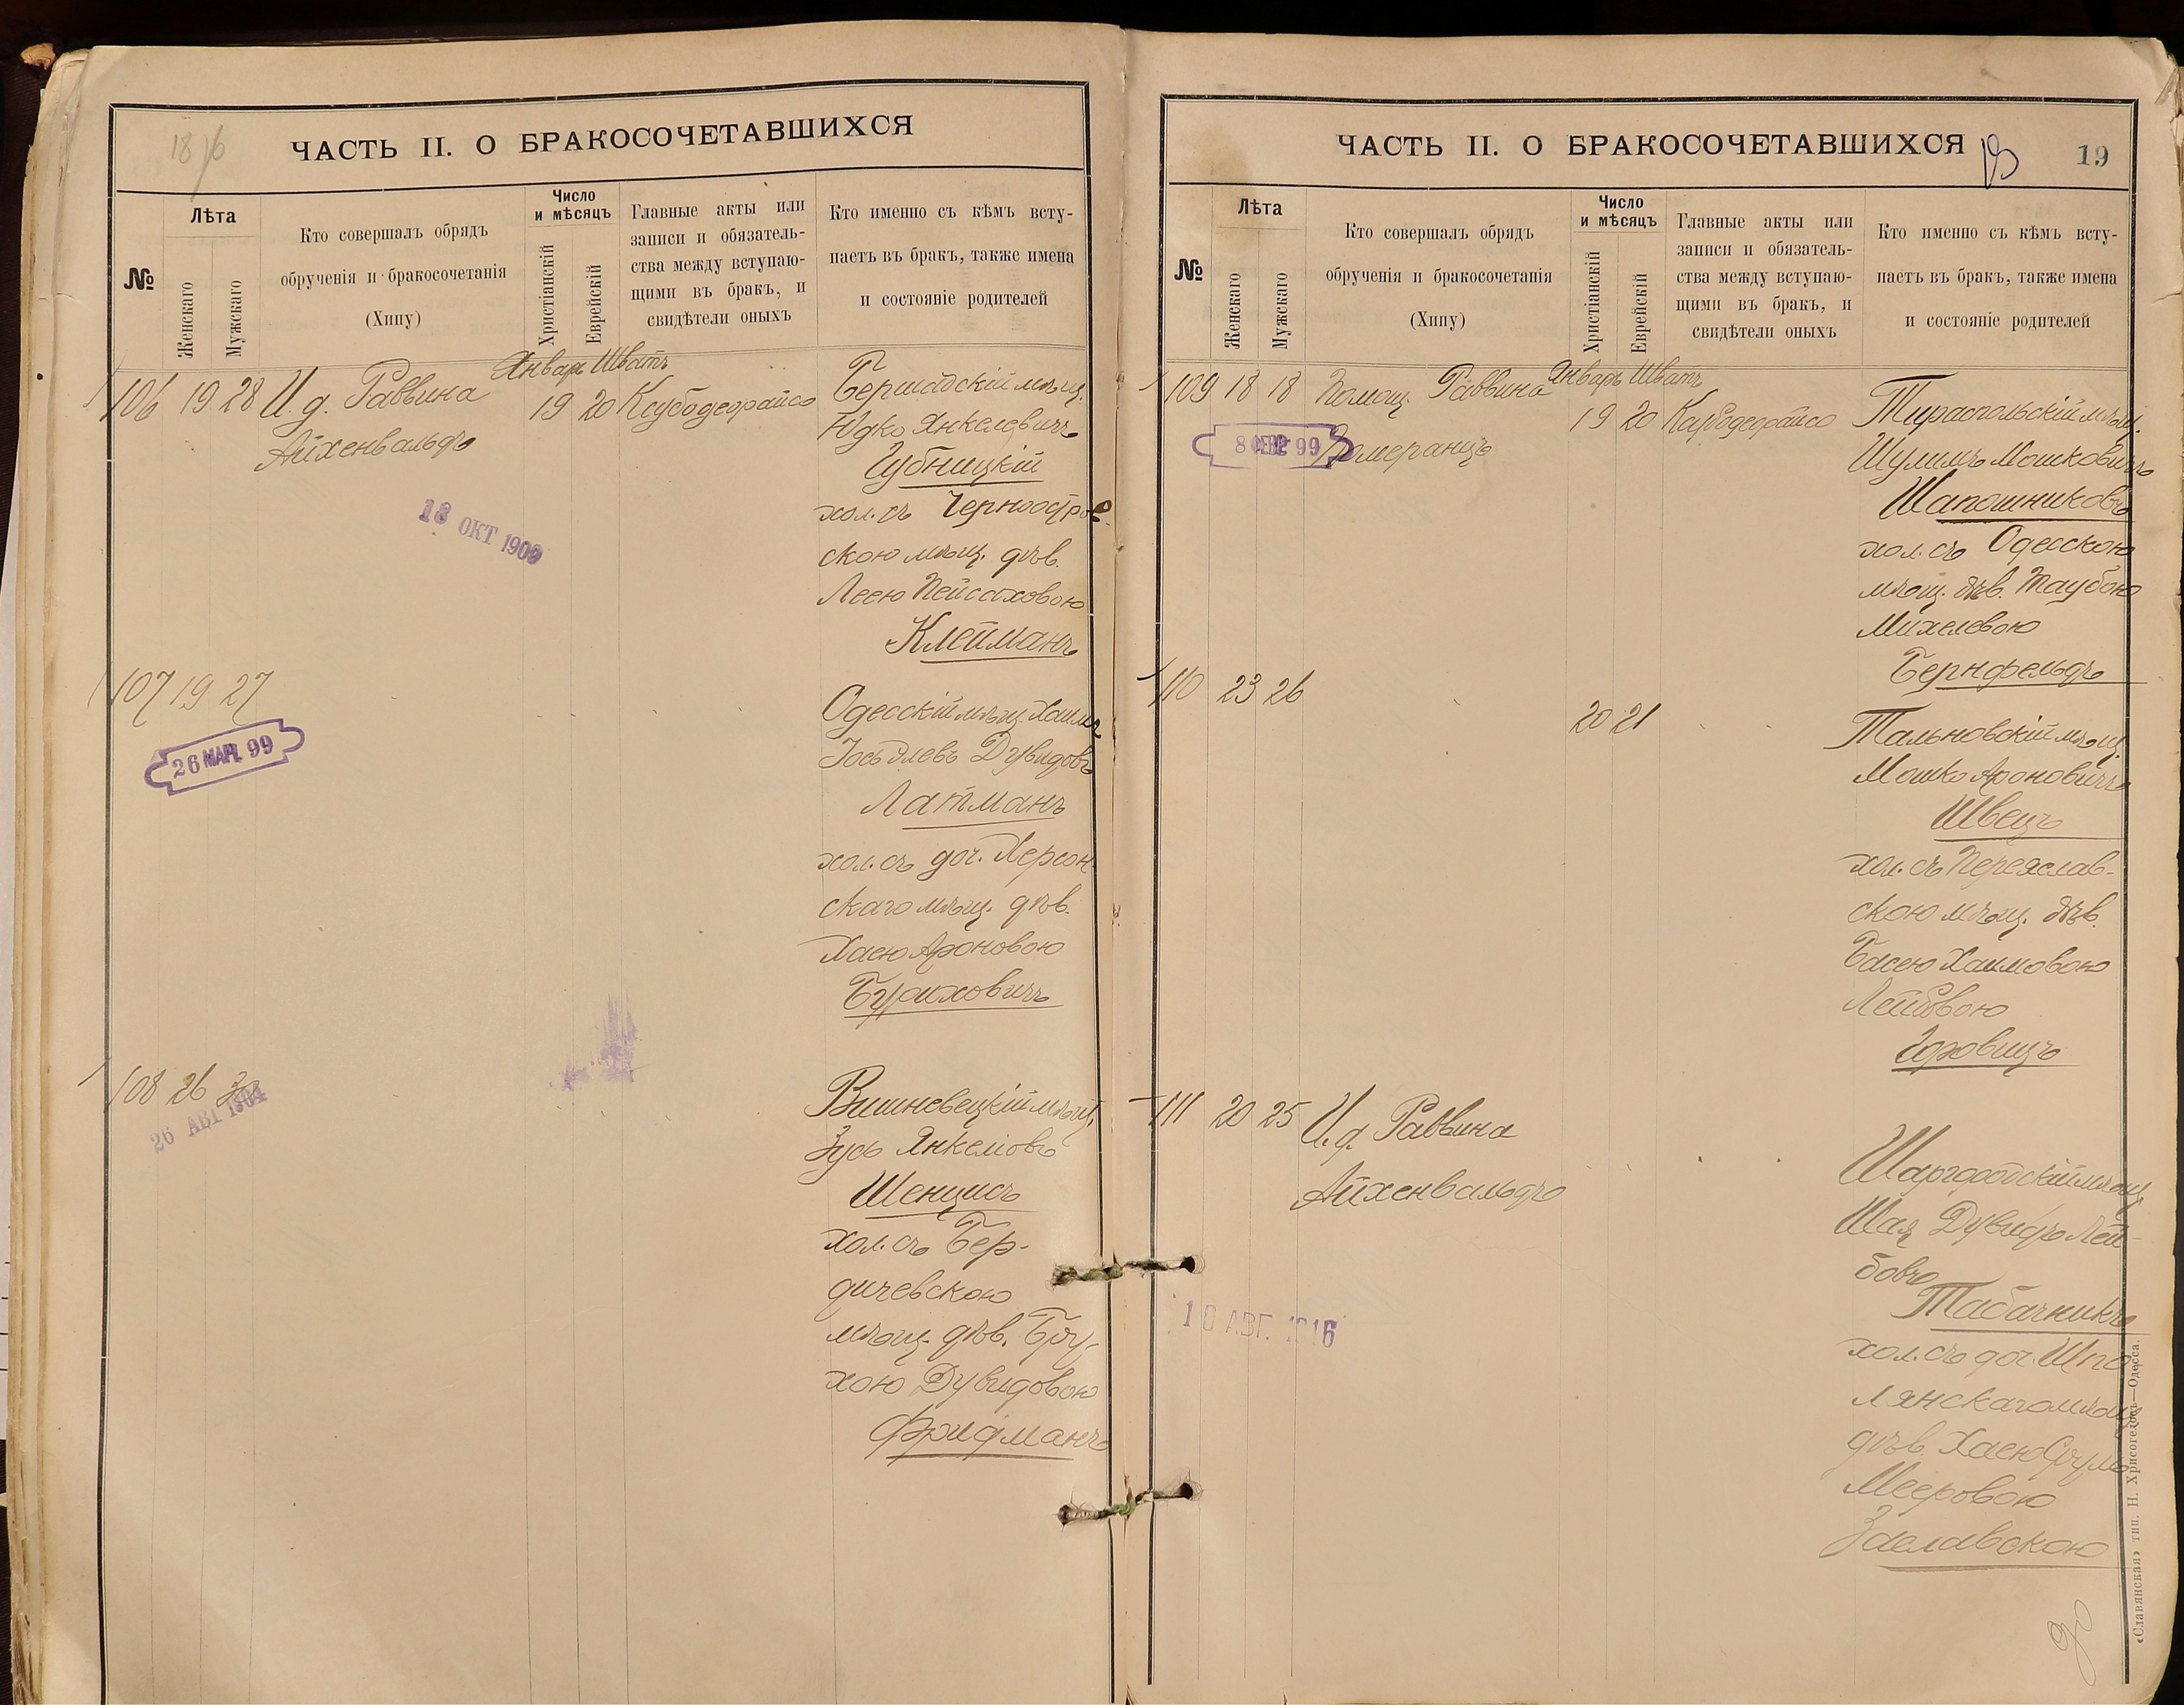 18
ЧАСТЬ II. О БРАКОСОЧЕТАВШИХСЯ
№
Лѣта
Женскаго
Мужскаго
Кто совершалъ обрядъ
обрученія и бракосочетанія
(Хипу)
Число
и мѣсяцъ
Христіанскій
Еврейскій
Главные акты или
записи и обязатель-
ства между вступаю-
щими въ бракъ, и
свидѣтели оныхъ
Кто именно съ кѣмъ всту-
паетъ въ бракъ, также имена
и состояніе родителей
Январь Шватъ
106 19 28 И. д. Раввина 19 20 Ксубодеорайсо Бершадскій мѣщ.
Айхенвальдъ
Юдко Янкелевичъ
Губницкій
хол. съ Черноостров-
скою мѣщ. дѣв.
Леею Пейсаховою
Клейманъ
13 ОКТ 1909
107 19 27
26 МАР. 99
Одесскій мѣщ. Хаимъ
Іось Элевъ Дувидовъ
Латманъ
хол. съ доч. Херсон-
скаго мѣщ. дѣв.
Хаею Ароновою
108 26 30
26 АВГ 1904
Вишневецкій мѣщ.
Зусь Янкеліовъ
Шенцисъ
хол. съ Бер-
дичевскою
мѣщ. дѣв. Бру-
хою Дувидовою
Фридманъ
ЧАСТЬ II. О БРАКОСОЧЕТАВШИХСЯ
19
№
Лѣта
Женскаго
Мужскаго
Кто совершалъ обрядъ
обрученія и бракосочетанія
(Хипу)
Число
и мѣсяцъ
Христіанскій
Еврейскій
Главные акты или
записи и обязатель-
ства между вступаю-
щими въ бракъ, и
свидѣтели оныхъ
Кто именно съ кѣмъ всту-
паетъ въ бракъ, также имена
и состояніе родителей
Январь Шватъ
109 18 18 Помощ. Раввина 19 20 Ксубодеорайсо Тираспольскій мѣщ.
Померанцъ
8 99
Шулимъ Мошковичъ
Шапошниковъ
хол. съ Одесскою
мѣщ. дѣв. Таубою
Михелевою
Бернфельдъ
110 23 26 20 21
Тальновскій мѣщ.
Мошко Ароновичъ
Швецъ
хол. съ Переяслав-
скою мѣщ. дѣв.
Басею Хаимовою
Лейбовою
Горовицъ
111 20 25 И. д. Раввина
Айхенвальдъ
Шаргородскій мѣщ.
Шая Дувидъ Лей-
бовъ
Табачникъ
хол. съ доч. Шпо-
лянскаго мѣщ.
дѣв. Хаею Фрума
Мееровою
Заславскою
10 АВГ. 1916
«Славянская» тип. Н. Хрисогелосъ—Одесса.